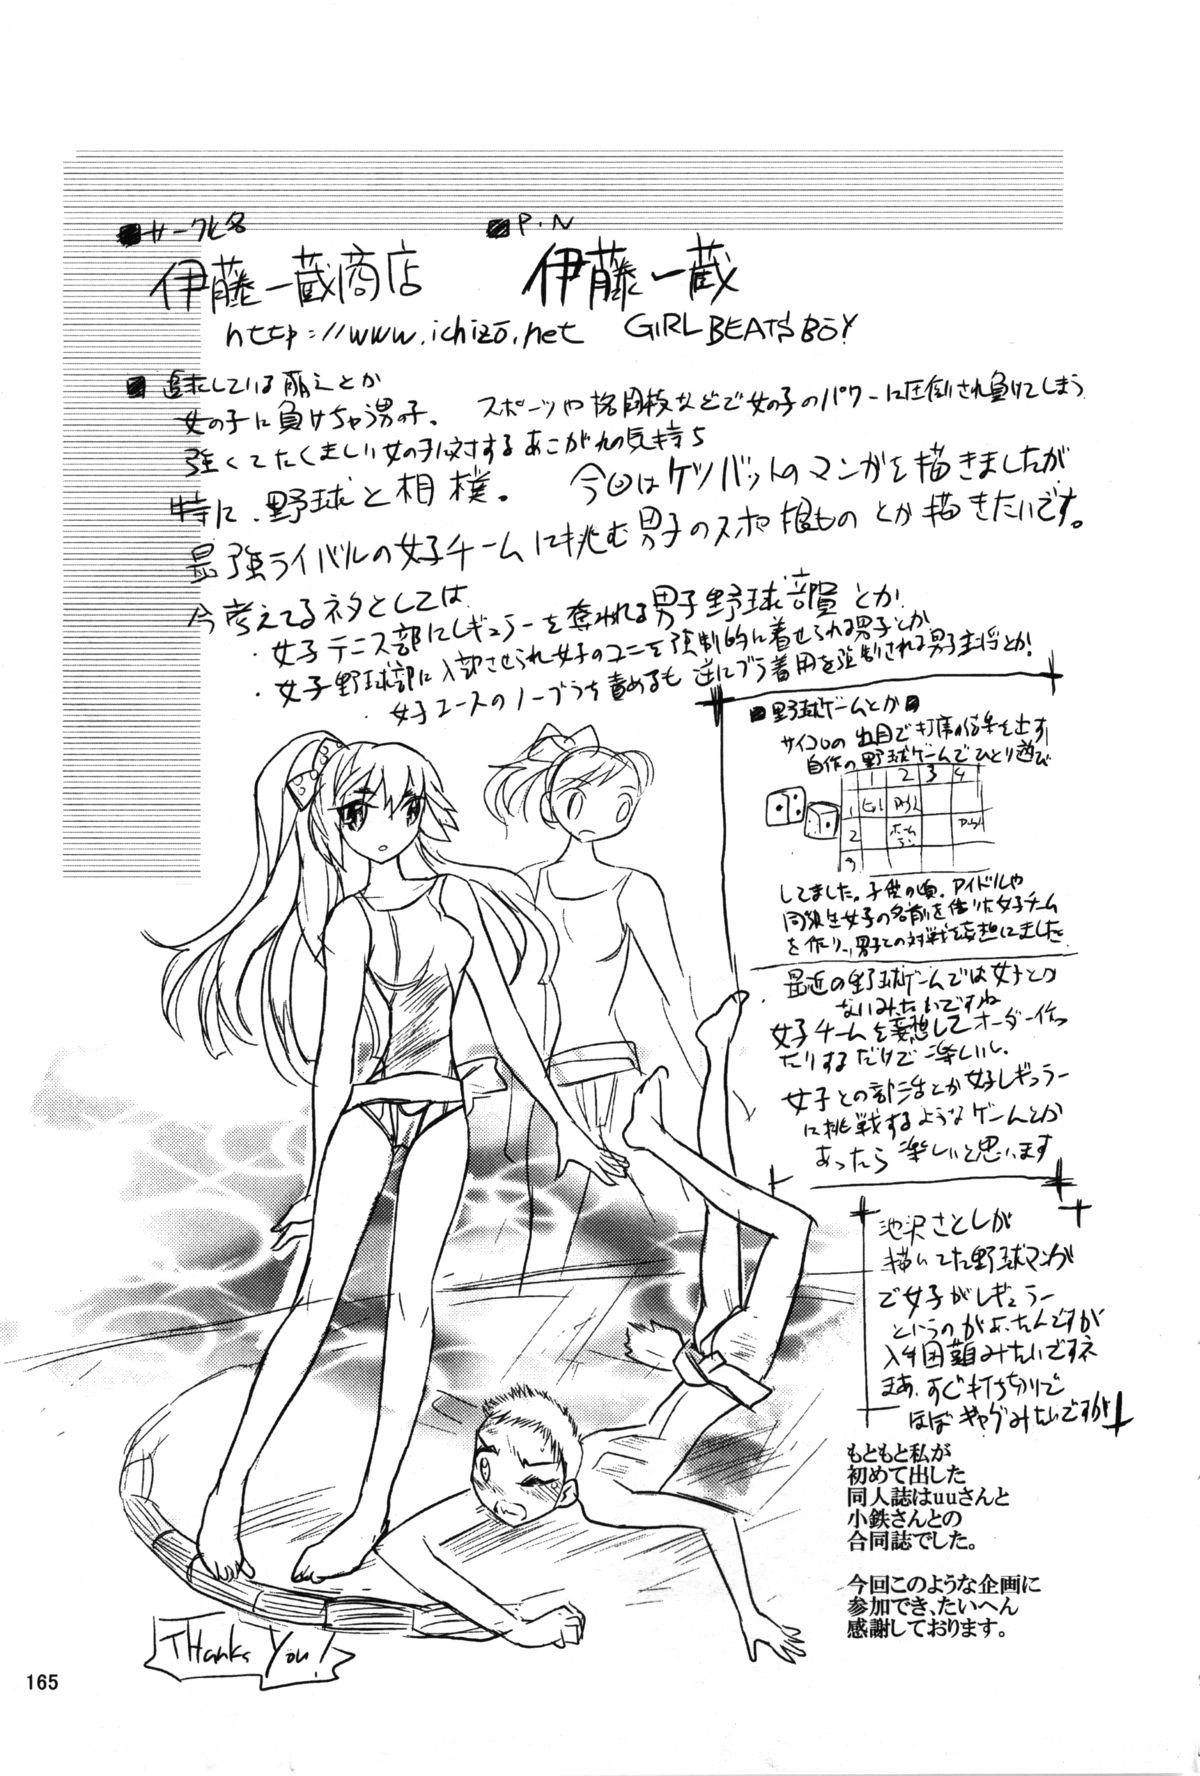 ■サークル名
伊藤一蔵商店
■P.N
伊藤一蔵
http://www.ichizo.net GIRL BEATS BOY
■追求している萌えとか
女の子に負けちゃう男の子。スポーツや格闘技などで女の子のパワーに圧倒され負けてしまう
強くてたくましい女の子に対するあこがれの気持ち
特に、野球と相撲。今回はケツバットのマンガを描きましたが
最強ライバルの女子チームに挑む男子のスポ根ものとか描きたいです。
今考えてるネタとしては
・女子テニス部にレギュラーを奪われる男子野球部員とか
・女子野球部に入部させられ女子のユニを強制的に着せられる男子とか
・女子エースのノーブラを責めるも逆にブラ着用を強制される男主将とか!
■野球ゲームとか■
サイコロの出目で打席の結果を出す
自作の野球ゲームでひとり遊び
1 2 3 4
1
2 ホームラン
3
してました。子供の頃、アイドルや
同級生女子の名前を借りた女子チーム
を作り、男子との対戦を妄想してました
最近の野球ゲームでは女子とか
ないみたいですね
女子チームを妄想してオーダー作っ
たりするだけで楽しいし、
女子との部活とか女子レギュラー
に挑戦するようなゲームとか
あったら楽しいと思います
池沢さとしが
描いてた野球マンガ
で女子がレギュラー
というのがよかったんですが
入手困難みたいですネ
まあ、すぐ打ち切りで
ほぼギャグみたいですが
もともと私が
初めて出した
同人誌はuuさんと
小鉄さんとの
合同誌でした。
今回このような企画に
参加でき、たいへん
感謝しております。
THanks You!
165